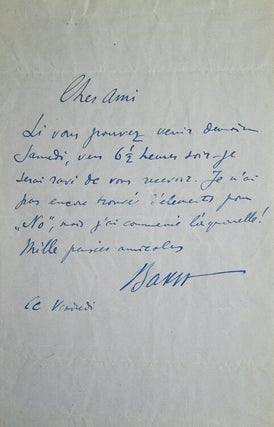 Cher Ami
Si vous pouvez venir demain
Samedi, vers 6½ heures soir - je
serai ravi de vous recevoir. Je n'ai
pas encore trouvé d'éléments pour
„Nô”, mais j'ai commencé l'aquarelle!
Mille pensées amicales
Bakst
Ce Vendredi